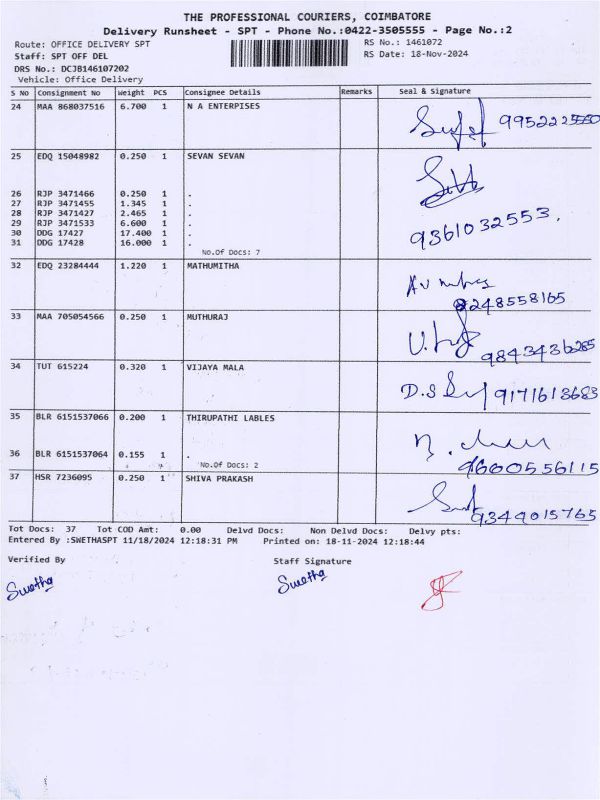 THE PROFESSIONAL COURIERS, COIMBATORE
Delivery Runsheet - SPT - Phone No.:0422-3505555 - Page No.:2
Route: OFFICE DELIVERY SPT RS No.: 1461072
Staff: SPT OFF DEL RS Date: 18-Nov-2024
DRS No.: DCJB146107202
Vehicle: Office Delivery
S No Consignment No Weight PCS Consignee Details Remarks Seal & Signature
24 MAA 868037516 6.700 1 N A ENTERPISES
25 EDQ 15048982 0.250 1 SEVAN SEVAN
26 RJP 3471466 0.250 1 .
27 RJP 3471455 1.345 1 .
28 RJP 3471427 2.465 1 .
29 RJP 3471533 6.600 1 .
30 DDG 17427 17.400 1 .
31 DDG 17428 16.000 1 .
9361032553.
No.Of Docs: 7
32 EDQ 23284444 1.220 1 MATHUMITHA
33 MAA 705054566 0.250 1 MUTHURAJ
9843436285
34 TUT 615224 0.320 1 VIJAYA MALA
9171613683
35 BLR 6151537066 0.200 1 THIRUPATHI LABLES
36 BLR 6151537064 0.155 1 .
No.Of Docs: 2 9600556115
37 HSR 7236095 0.250 1 SHIVA PRAKASH
9344015765
Tot Docs: 37 Tot COD Amt: 0.00 Delvd Docs: Non Delvd Docs: Delvy pts:
Entered By :SWETHASPT 11/18/2024 12:18:31 PM Printed on: 18-11-2024 12:18:44
Verified By Staff Signature
Swetha Swetha